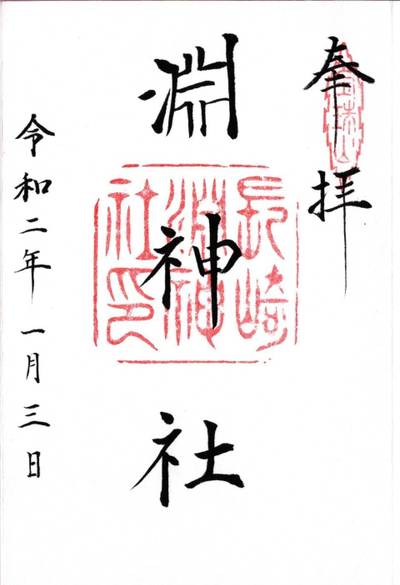 奉拝
淵神社
長崎
淵神
社印
令和二年一月三日